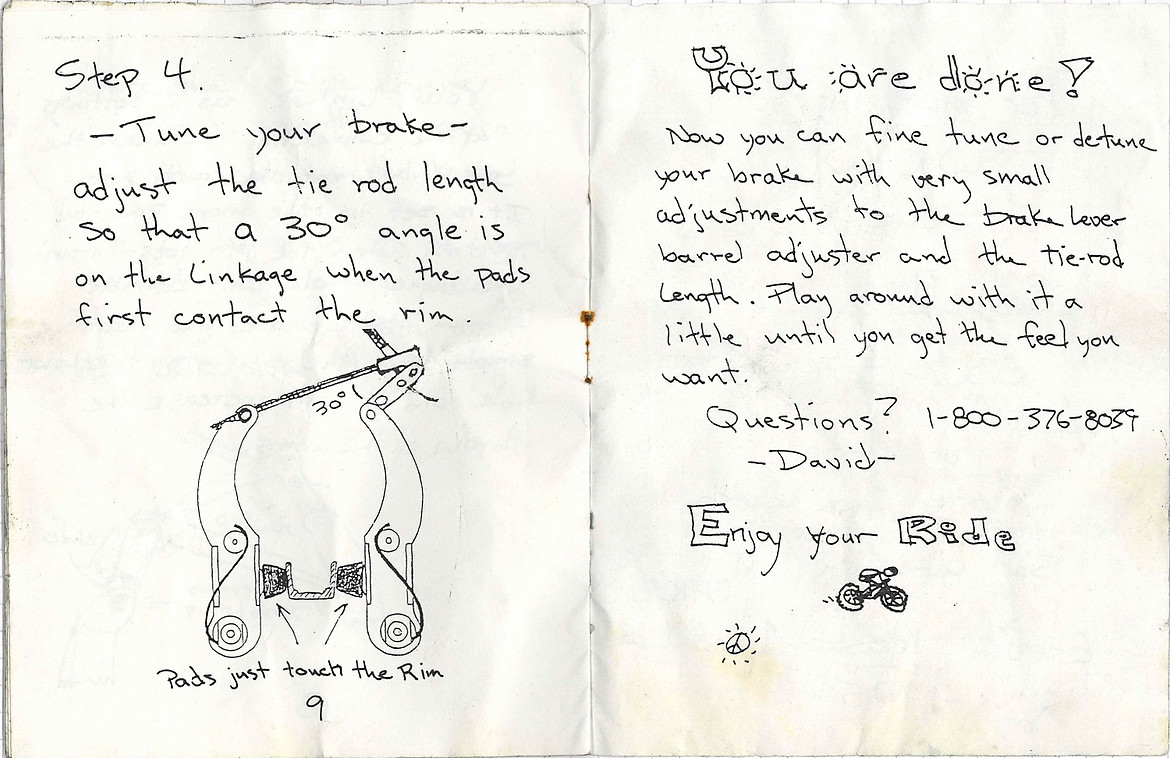 Step 4.
- Tune your brake -
adjust the tie rod length
so that a 30° angle is
on the Linkage when the pads
first contact the rim.
30°
Pads just touch the Rim
9
You are done!
Now you can fine tune or detune
your brake with very small
adjustments to the brake lever
barrel adjuster and the tie-rod
Length. Play around with it a
little until you get the feel you
want.
Questions? 1-800-376-8039
- David -
Enjoy your Ride